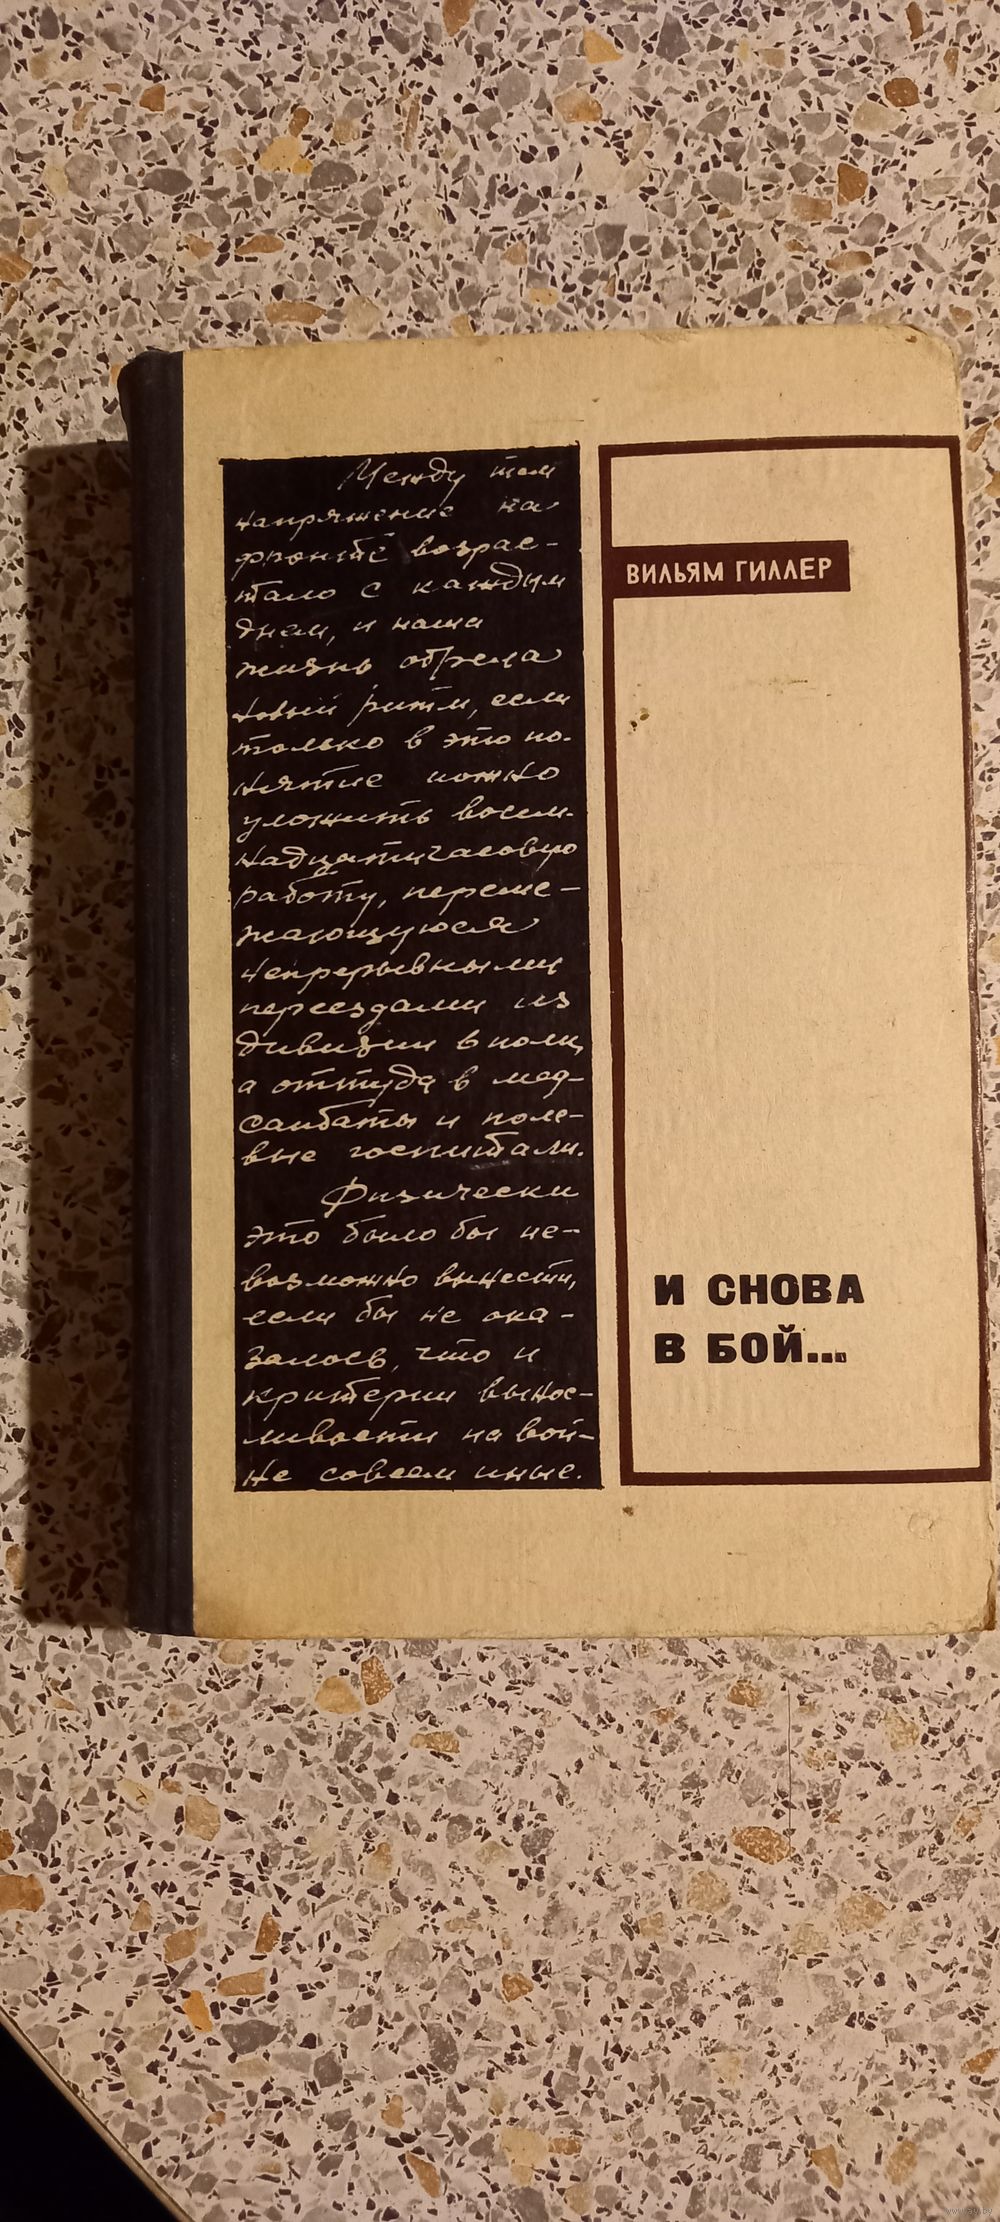 Между тем
напряжение на
фронте возрас-
тало с каждым
днем, и наша
жизнь обрела
новый ритм, если
только в это по-
нятие можно
уложить восем-
надцатичасовую
работу, переме-
жающуюся
непрерывными
переездами из
дивизии в полк,
а оттуда в мед-
санбаты и поле-
вые госпитали.
Физически
это было бы не-
возможно вынести,
если бы не ока-
залось, что и
критерии вынос-
ливости на вой-
не совсем иные.
ВИЛЬЯМ ГИЛЛЕР
И СНОВА
В БОЙ...